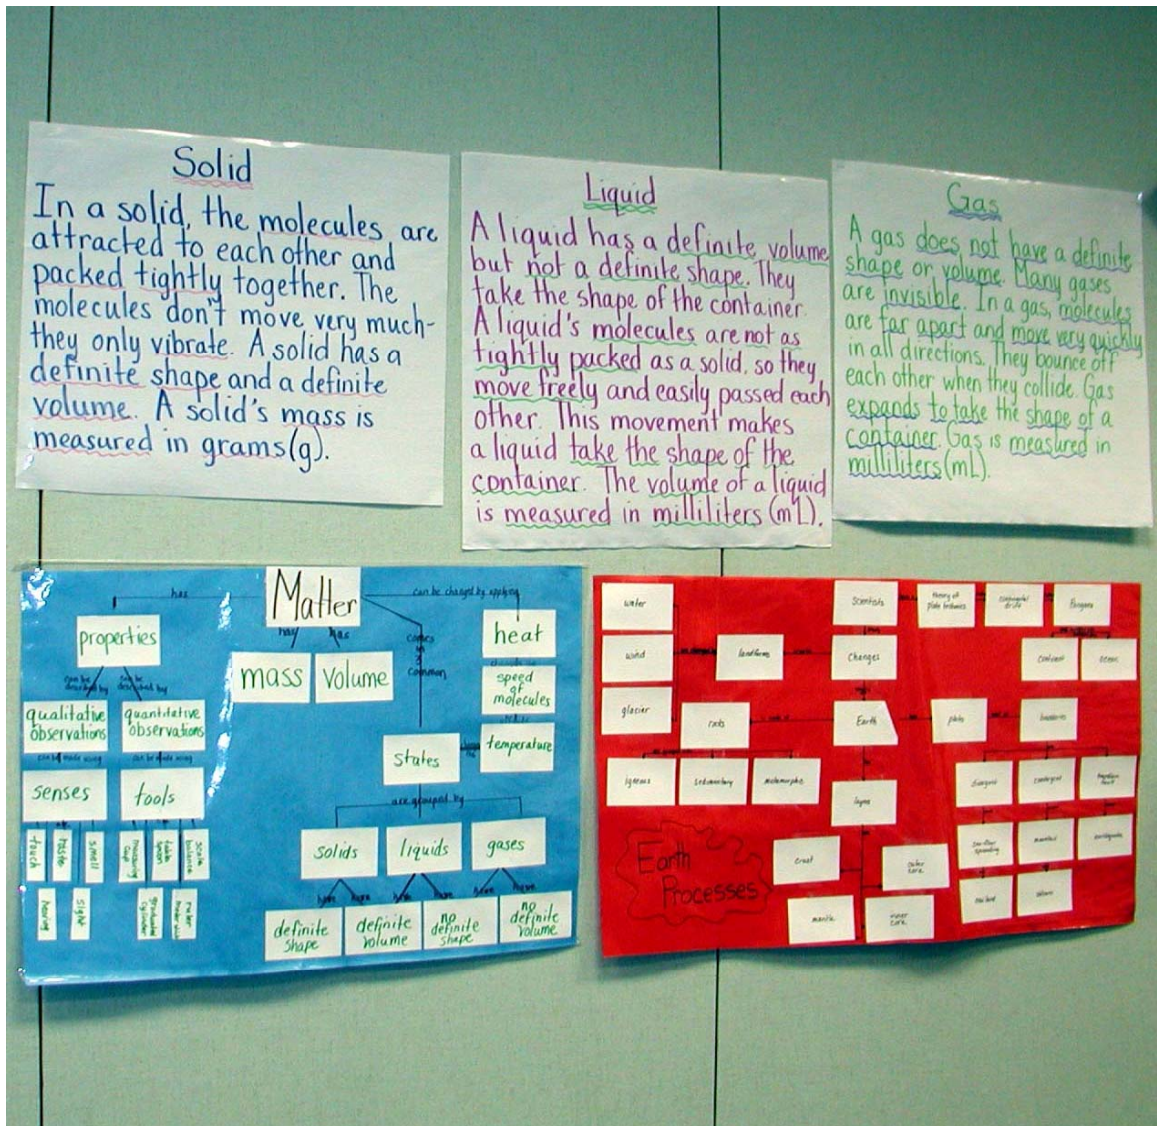 Solid
In a solid, the molecules are
attracted to each other and
packed tightly together. The
molecules don't move very much-
they only vibrate. A solid has a
definite shape and a definite
volume. A solid's mass is
measured in grams(g).
Liquid
A liquid has a definite volume
but not a definite shape. They
take the shape of the container.
A liquid's molecules are not as
tightly packed as a solid, so they
move freely and easily passed each
other. This movement makes
a liquid take the shape of the
container. The volume of a liquid
is measured in milliliters (mL).
Gas
A gas does not have a definite
shape or volume. Many gases
are invisible. In a gas, molecules
are far apart and move very quickly
in all directions. They bounce off
each other when they collide. Gas
expands to take the shape of a
container. Gas is measured in
milliliters (mL).
Matter
has
can be changed by applying
properties
has
has
mass
volume
heat
speed
of
molecules
temperature
can be
described by
can be
described by
qualitative
observations
quantitative
observations
can be made using
can be made using
senses
tools
touch
taste
smell
hearing
sight
measuring
cup
graduated
cylinder
states
are grouped by
solids
liquids
gases
have
have
have
have
have
have
definite
shape
definite
volume
no
definite
shape
no
definite
volume
water
wind
glacier
landforms
scientists
theory of
plate tectonics
Pangaea
changes
ocean
rocks
Earth
plates
boundaries
igneous
sedimentary
metamorphic
layers
divergent
convergent
crust
outer
core
mantle
inner
core
earthquakes
Earth
Processes